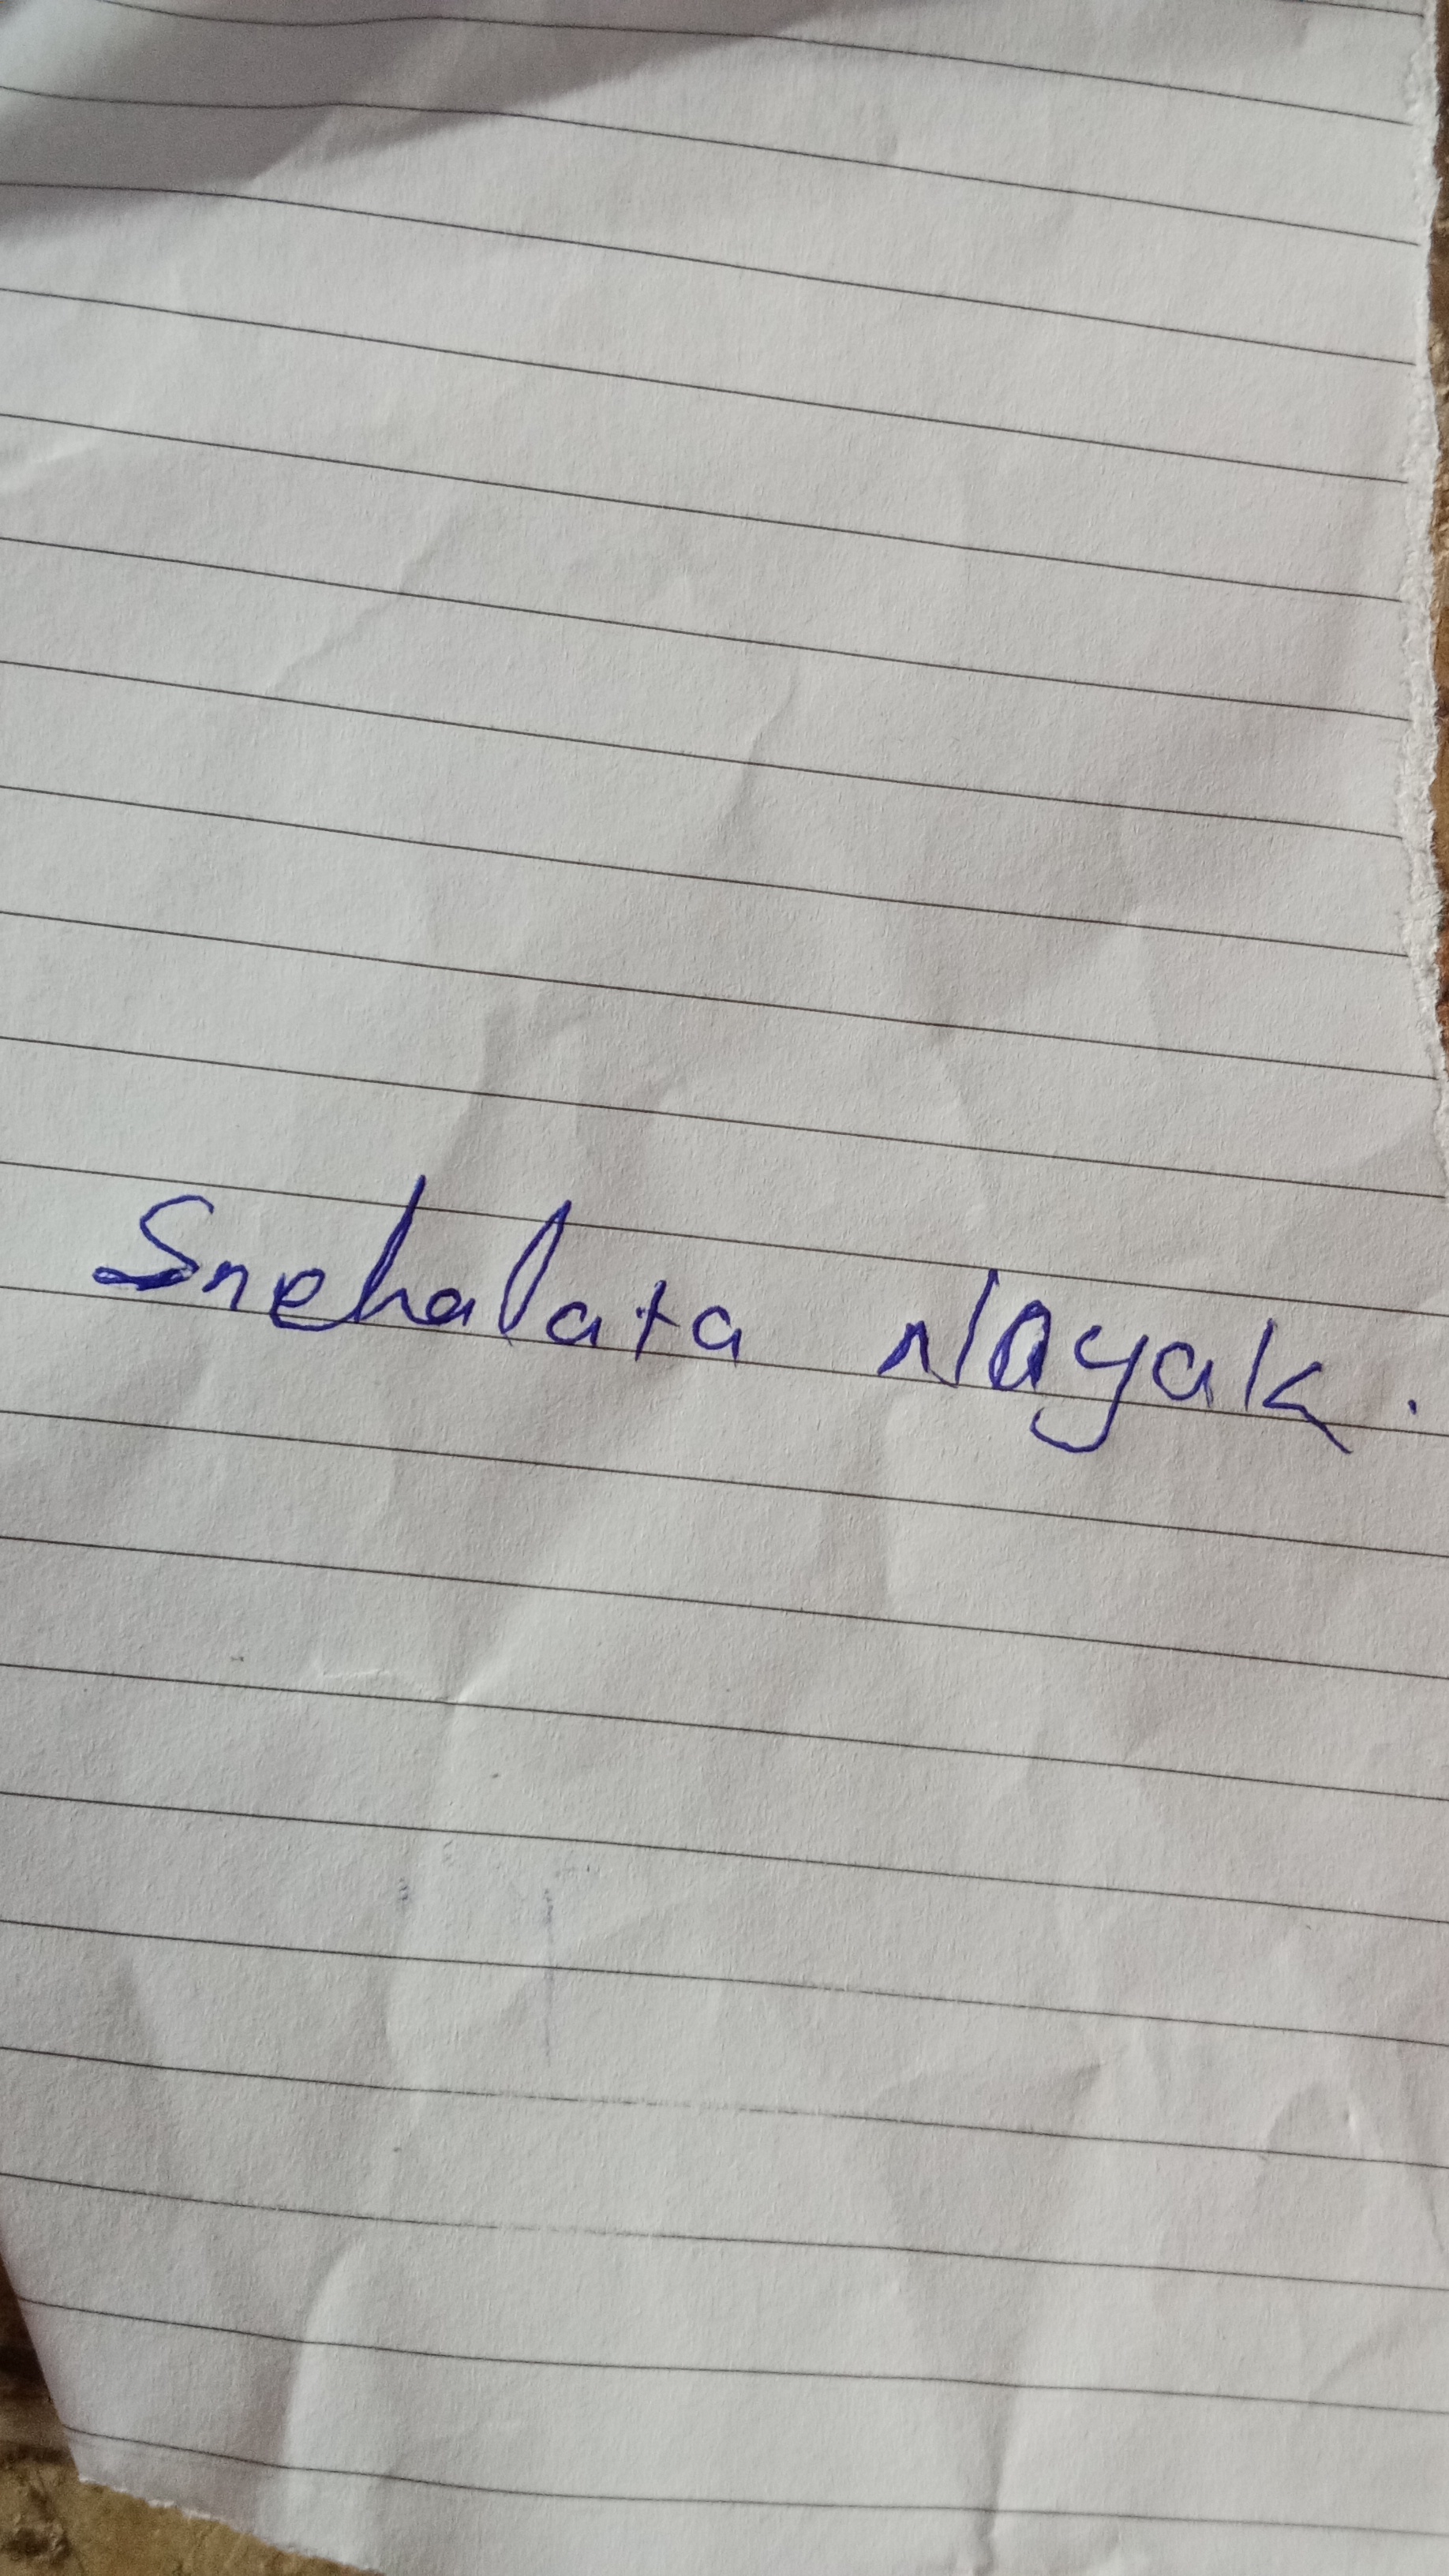 Snehalata Nayak.